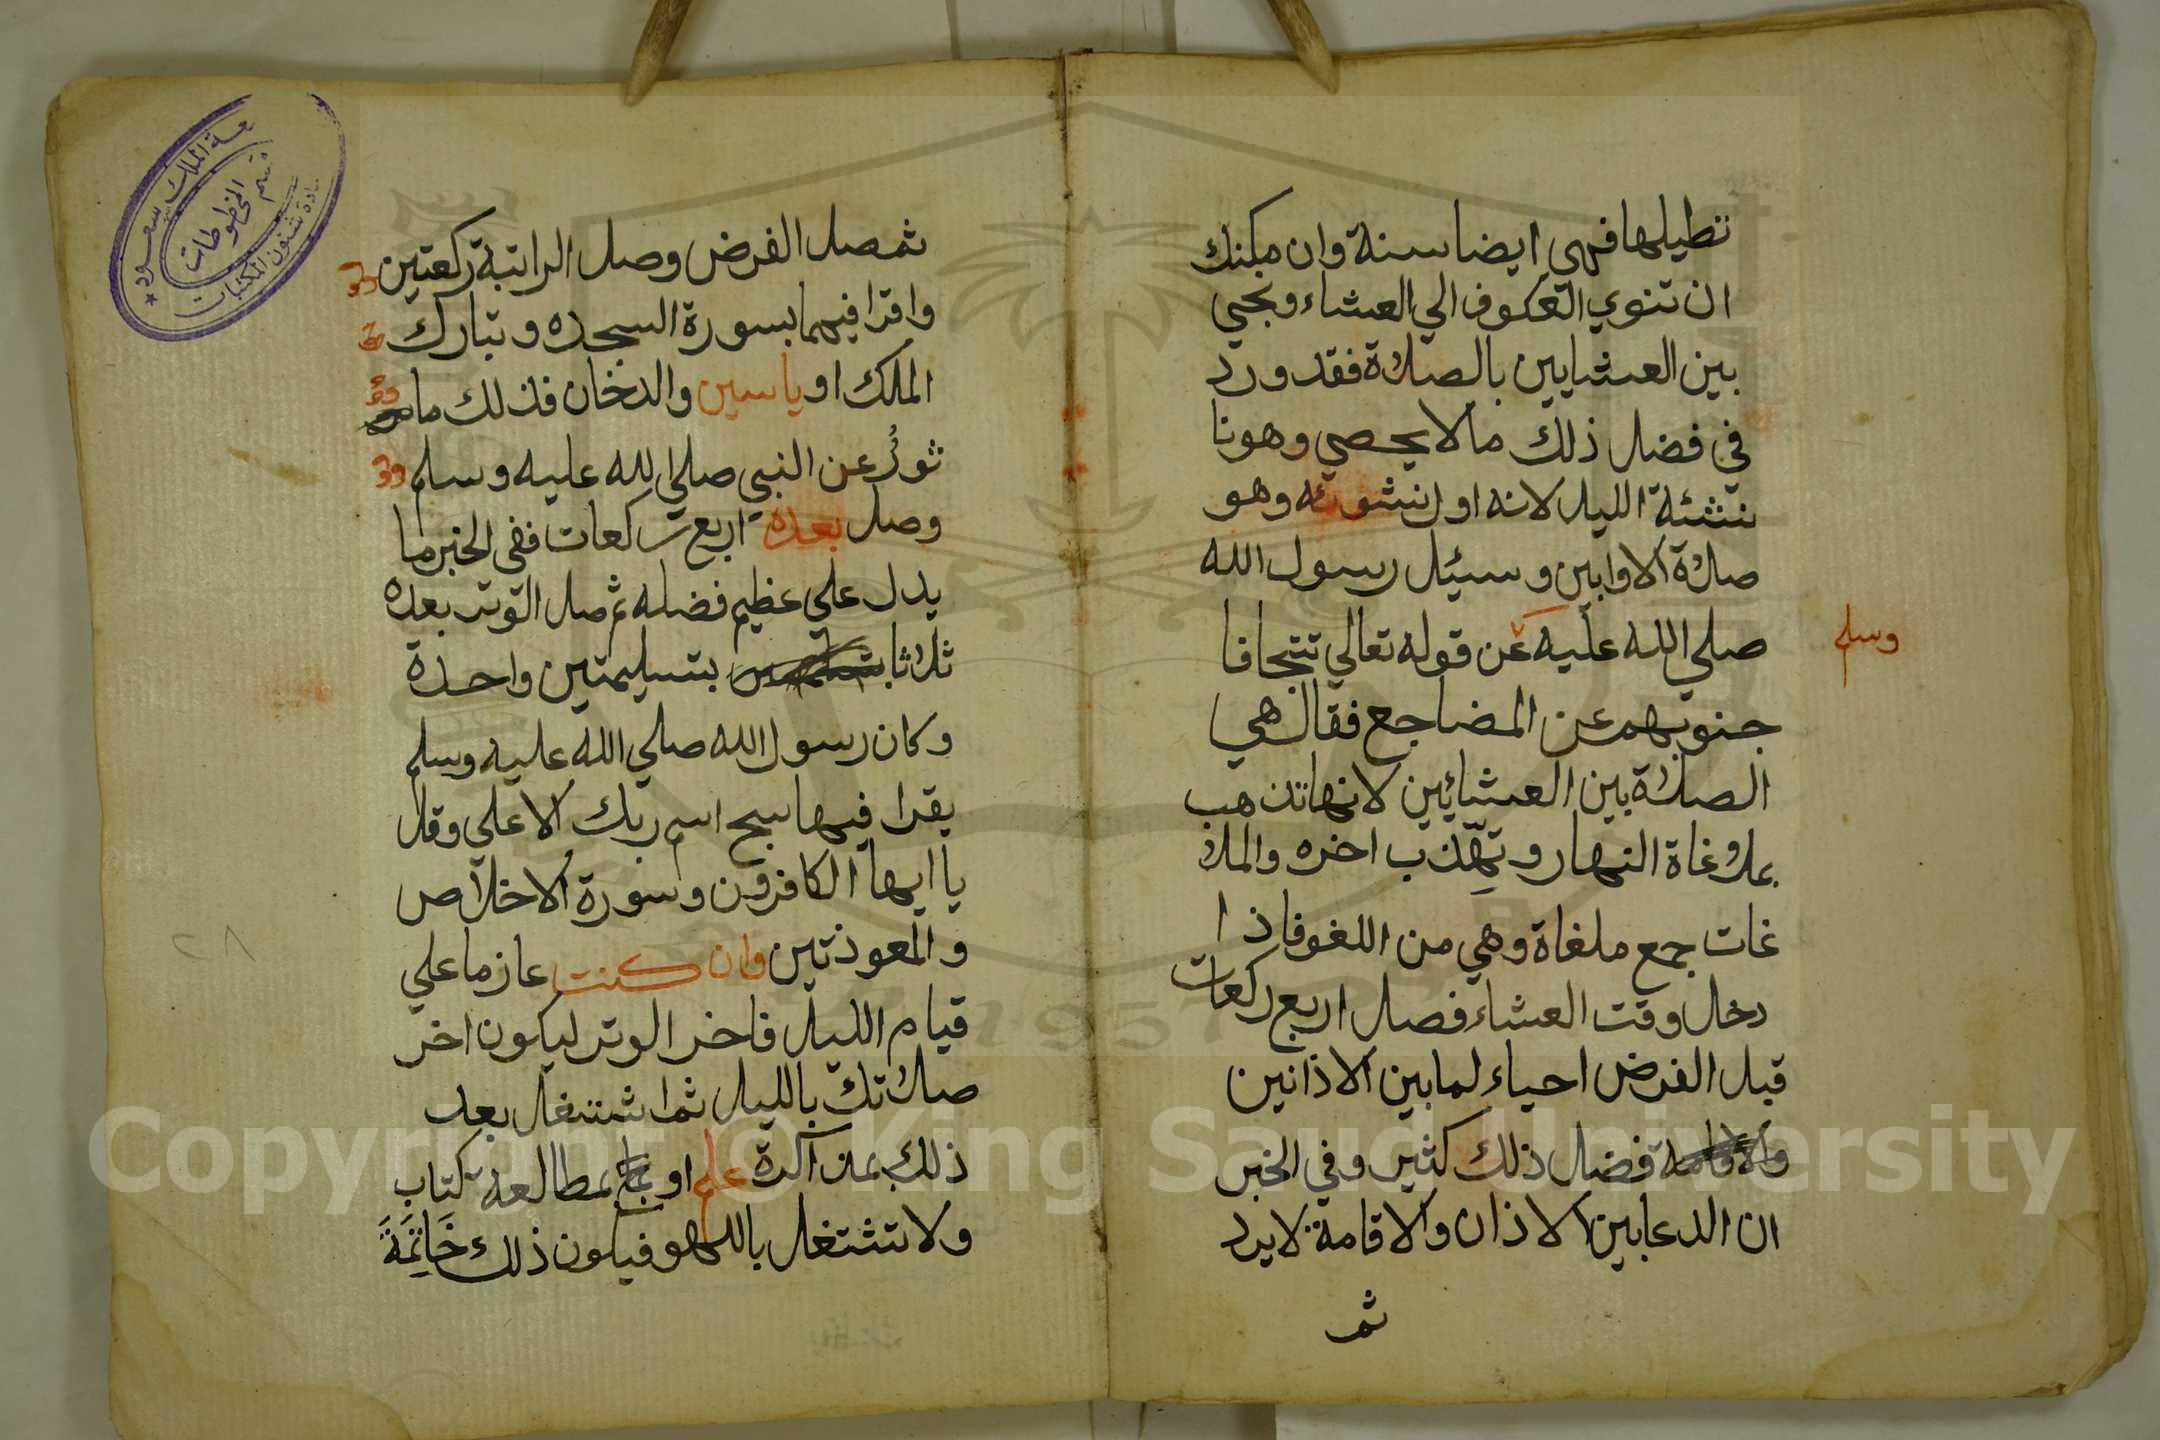 تطيلها فهي ايضا سنة وان مكنك
ان تنوي العكوف الي العشاء وتحيي
بين العشايين بالصلاة فقد ورد
في فضل ذلك مالا يحصي وهو نا
نشئة الليل لانه اول نشوئه وهو
صلاة الاوابين وسيئل رسول الله
صلي الله عليه عن قوله تعالي تتجافا
وسلم
جنوبهم عن المضاجع فقال هي
الصلاة بين العشائين لانها تذهب
بملاوغاة النهار وتهذب اخره والملا
غات جمع ملغاة وهي من اللغو فاذا
دخل وقت العشاء فصل اربع ركعات
قبل الفرض احياء لما بين الاذانين
فضل ذلك كثير وفي الخبر
ان الدعا بين الاذان والاقامة لايرد
ثم
ثم صل الفرض وصل الراتبة ركعتين
واقرا فيهما بسورة السجده وتبارك
الملك او ياسين والدخان فذلك ما
ثور عن النبي صلي الله عليه وسلم
وصل بعده اربع ركعات ففي الخبر ما
يدل علي عظيم فضله ثم صل الوتر بعده
ثلاثا بتسليمتين واحدة
وكان رسول الله صلي الله عليه وسلم
يقرا فيها سبح اسم ربك الاعلي وقل
يا ايها الكافرون وسورة الاخلاص
والمعوذتين وان كنت عازما علي
قيام الليل فاخر الوتر ليكون اخر
صلاتك بالليل ثم اشتغل بعد
ذلك بمذاكرة علم او بمطالعة كتاب
ولا تشتغل باللهو فيكون ذلك خاتمة
جامعة الملك سعود
قسم المخطوطات
عمادة شئون المكتبات
٢٨
1957
Copyright © King Saud University